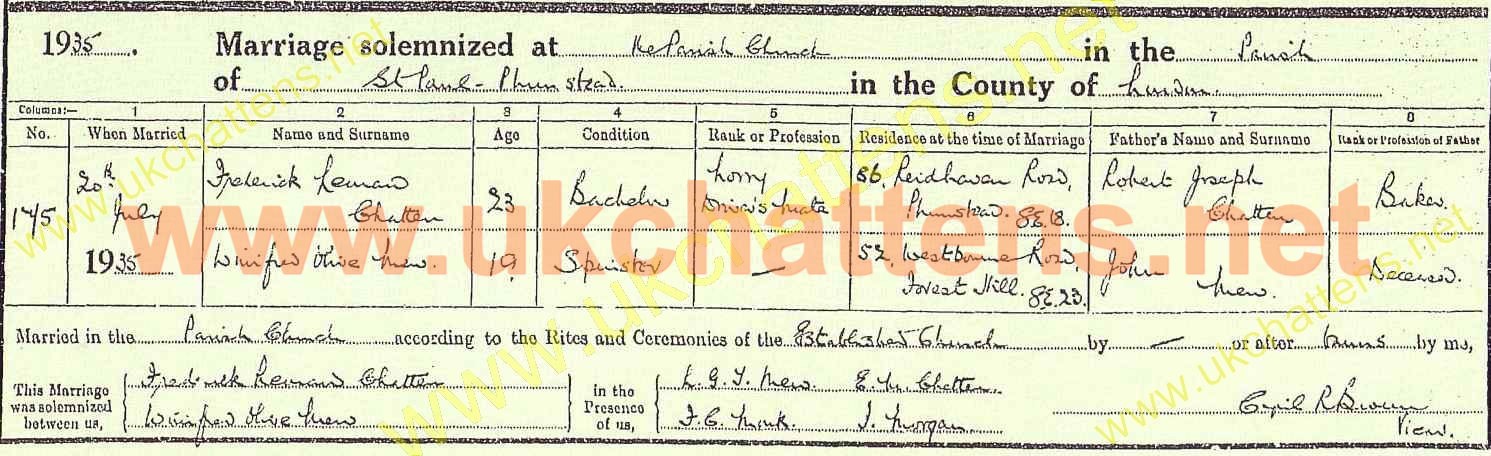 1935. Marriage solemnized at the Parish Church in the Parish
of St Paul - Plumstead. in the County of London.
Columns:— 1 2 3 4 5 6 7 8
No. When Married Name and Surname Age Condition Rank or Profession Residence at the time of Marriage Father's Name and Surname Rank or Profession of Father
175 20th July 1935 Frederick Leonard Chatten 23 Bachelor Lorry Driver's Mate 86, Reidhaven Road, Plumstead. S.E.18. Robert Joseph Chatten Baker.
Winifred Olive Mew. 19 Spinster — 52, Westbourne Road, Forest Hill. S.E.23. John Mew. Deceased.
Married in the Parish Church according to the Rites and Ceremonies of the Established Church by — or after banns by me,
This Marriage was solemnized between us, Frederick Leonard Chatten Winifred Olive Mew in the Presence of us, L. G. J. Mew. E. M. Chatten. F. C. J. Morgan Cyril R Brown
www.ukchattens.net